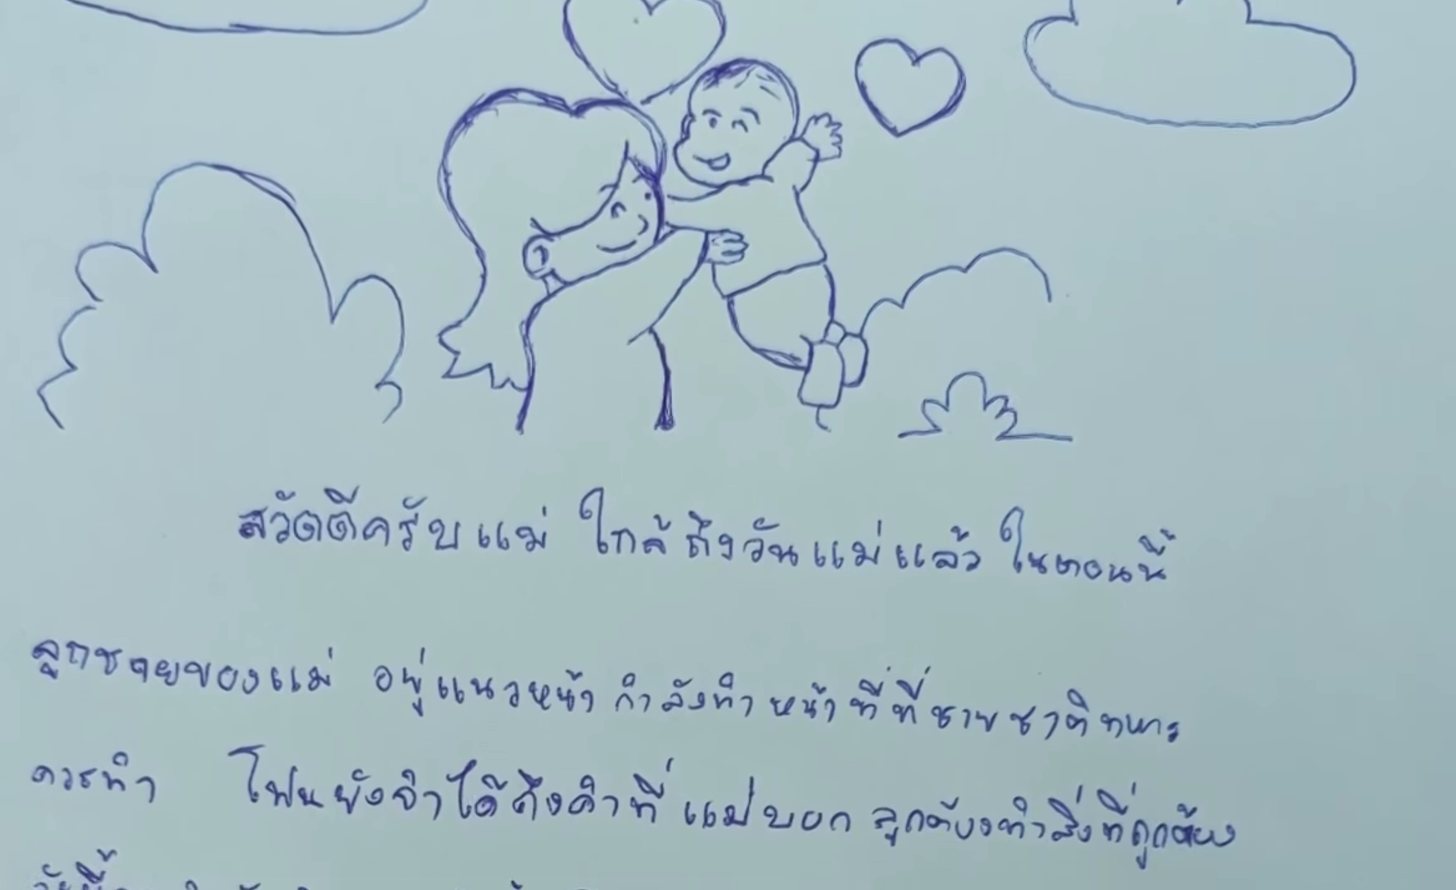 สวัตดีครับแม่ ใกล้ถึงวันแม่แล้ว ในตอนนี้
ลูกชายของแม่ อยู่แนวหน้า กำลังทำหน้าที่ที่ชายชาติทหาร
ควรทำ โฟนยังจำได้ถึงคำที่แม่บอก ลูกต้องทำสิ่งที่ถูกต้อง